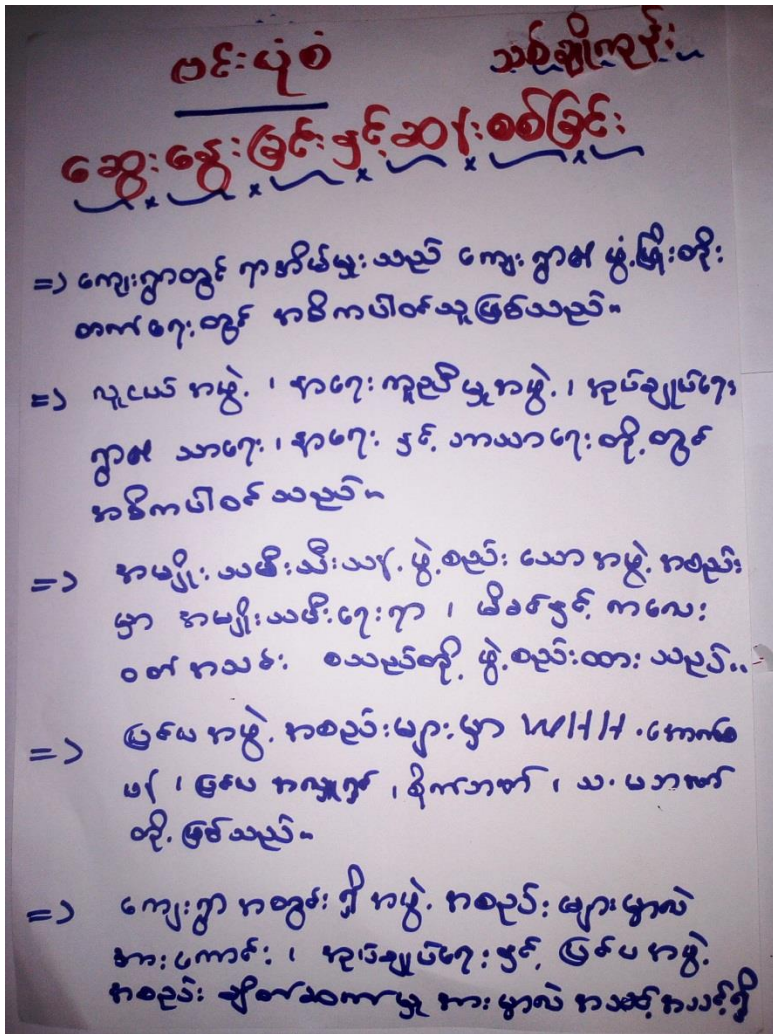 ဗင်းပုံစံ
သစ်ချိုကုန်း
ဆွေးနွေးခြင်းနှင့်ဆန်းစစ်ခြင်း
=> ကျေးရွာတွင် ရာအိမ်မှုးသည် ကျေးရွာ၏ ဖွံ့ဖြိုးတိုး
တက်ရေးတွင် အဓိကပါဝင်သူဖြစ်သည်။
=> လူငယ်အဖွဲ့၊ နာရေးကူညီမှုအဖွဲ့၊ အုပ်ချုပ်ရေး
ရွာ၏ သာရေး၊ နာရေး နှင့် ဘာသာရေးတို့တွင်
အဓိကပါဝင်သည်။
=> အမျိုးသမီးသီးသန့်ဖွဲ့စည်းသောအဖွဲ့အစည်း
မှာ အမျိုးသမီးရေးရာ၊ မိခင်နှင့် ကလေး
ဝတ်အသင်း စသည်တို့ ဖွဲ့စည်းထားသည်။
=> ပြင်ပအဖွဲ့အစည်းများမှာ WHH.
ပြင်ပအလှူရှင်၊ စိုက်ဘဏ်၊ သ.မဘဏ်
တို့ဖြစ်သည်။
=> ကျေးရွာအတွင်းရှိအဖွဲ့အစည်းများမှာလဲ
အားကောင်း၊ အုပ်ချုပ်ရေးနှင့် ပြင်ပအဖွဲ့
အစည်း ချိတ်ဆက်မှုအားမှာလဲ အသင့်အသင့်ရှိ